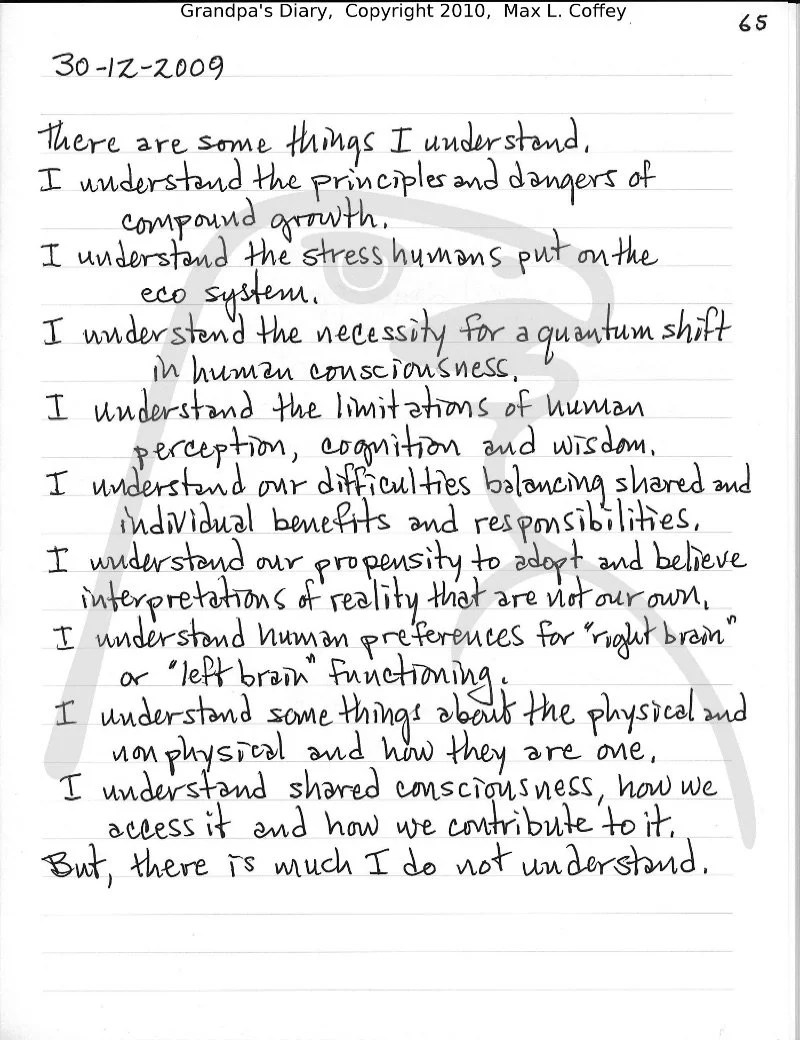 Grandpa's Diary, Copyright 2010, Max L. Coffey
65
30-12-2009
There are some things I understand.
I understand the principles and dangers of
compound growth.
I understand the stress humans put on the
eco system.
I understand the necessity for a quantum shift
in human consciousness.
I understand the limitations of human
perception, cognition and wisdom.
I understand our difficulties balancing shared and
individual benefits and responsibilities.
I understand our propensity to adopt and believe
interpretations of reality that are not our own.
I understand human preferences for "right brain"
or "left brain" functioning.
I understand some things about the physical and
non physical and how they are one.
I understand shared consciousness, how we
access it and how we contribute to it.
But, there is much I do not understand.